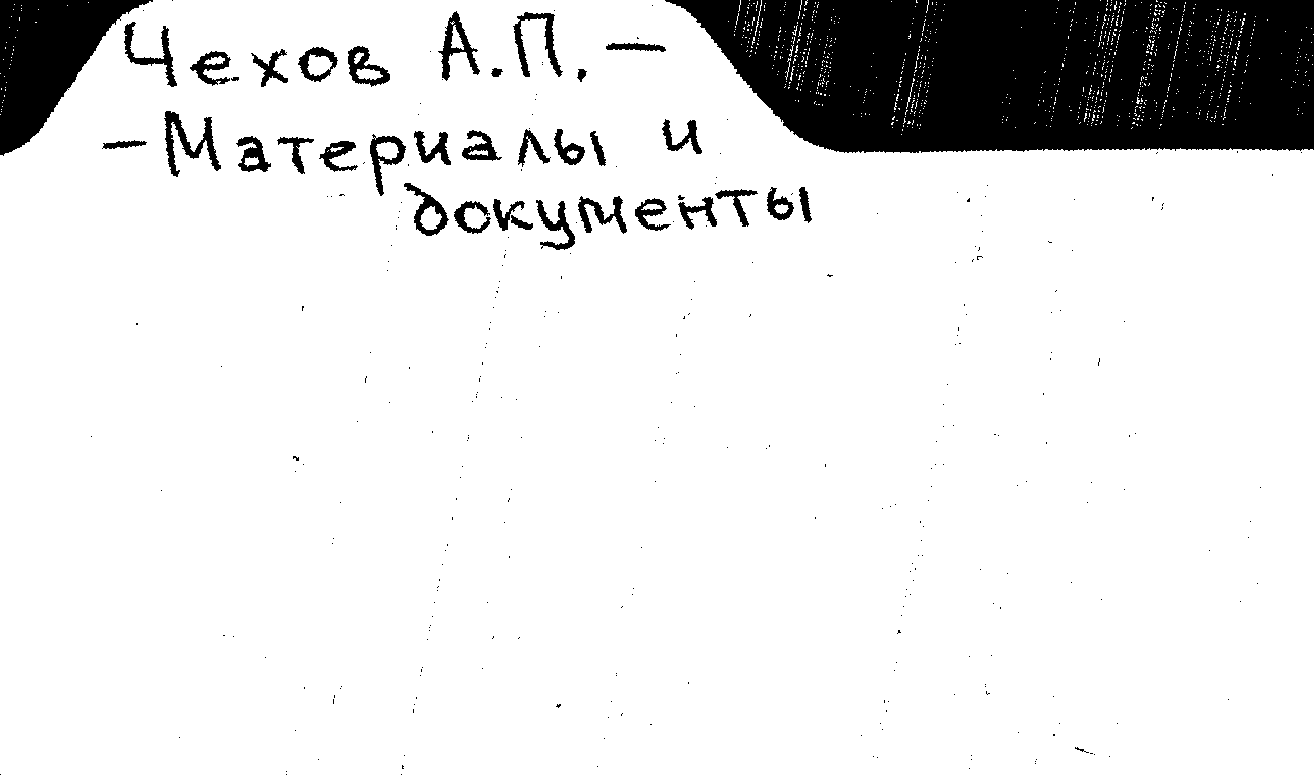 Чехов А.П. –
– Материалы и
документы